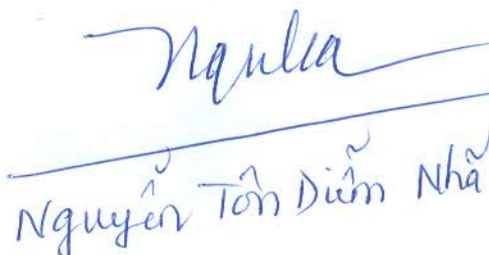 Nguyễn Tôn Diễm Nhã